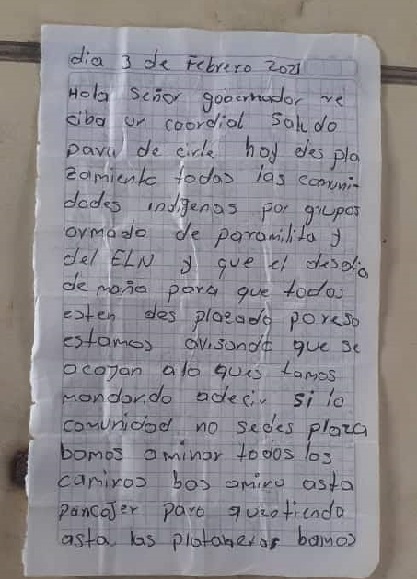 dia 3 de Febrero 2021
Hola señor goobernador re
ciba un coordial Saludo
para de cirle hay des pla
zamiento todas las comuni-
dades indigenas por grupos
armado de paramilita y
del ELN y que el desalo
de maña para que todos
esten des plazado poreso
estamos avisando que se
acojan alo ques tamos
mandando adecir si la
comunidad no sedes plaza
bamos aminar todos los
caminos bos amina asta
pancojer para
asta las plataneras bamos